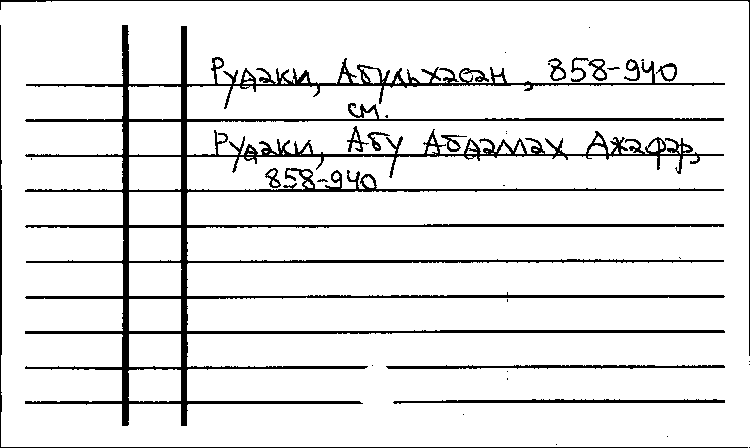 Рудаки, Абульхасан, 858-940
см.
Рудаки, Абу Абдаллах Джафар,
858-940